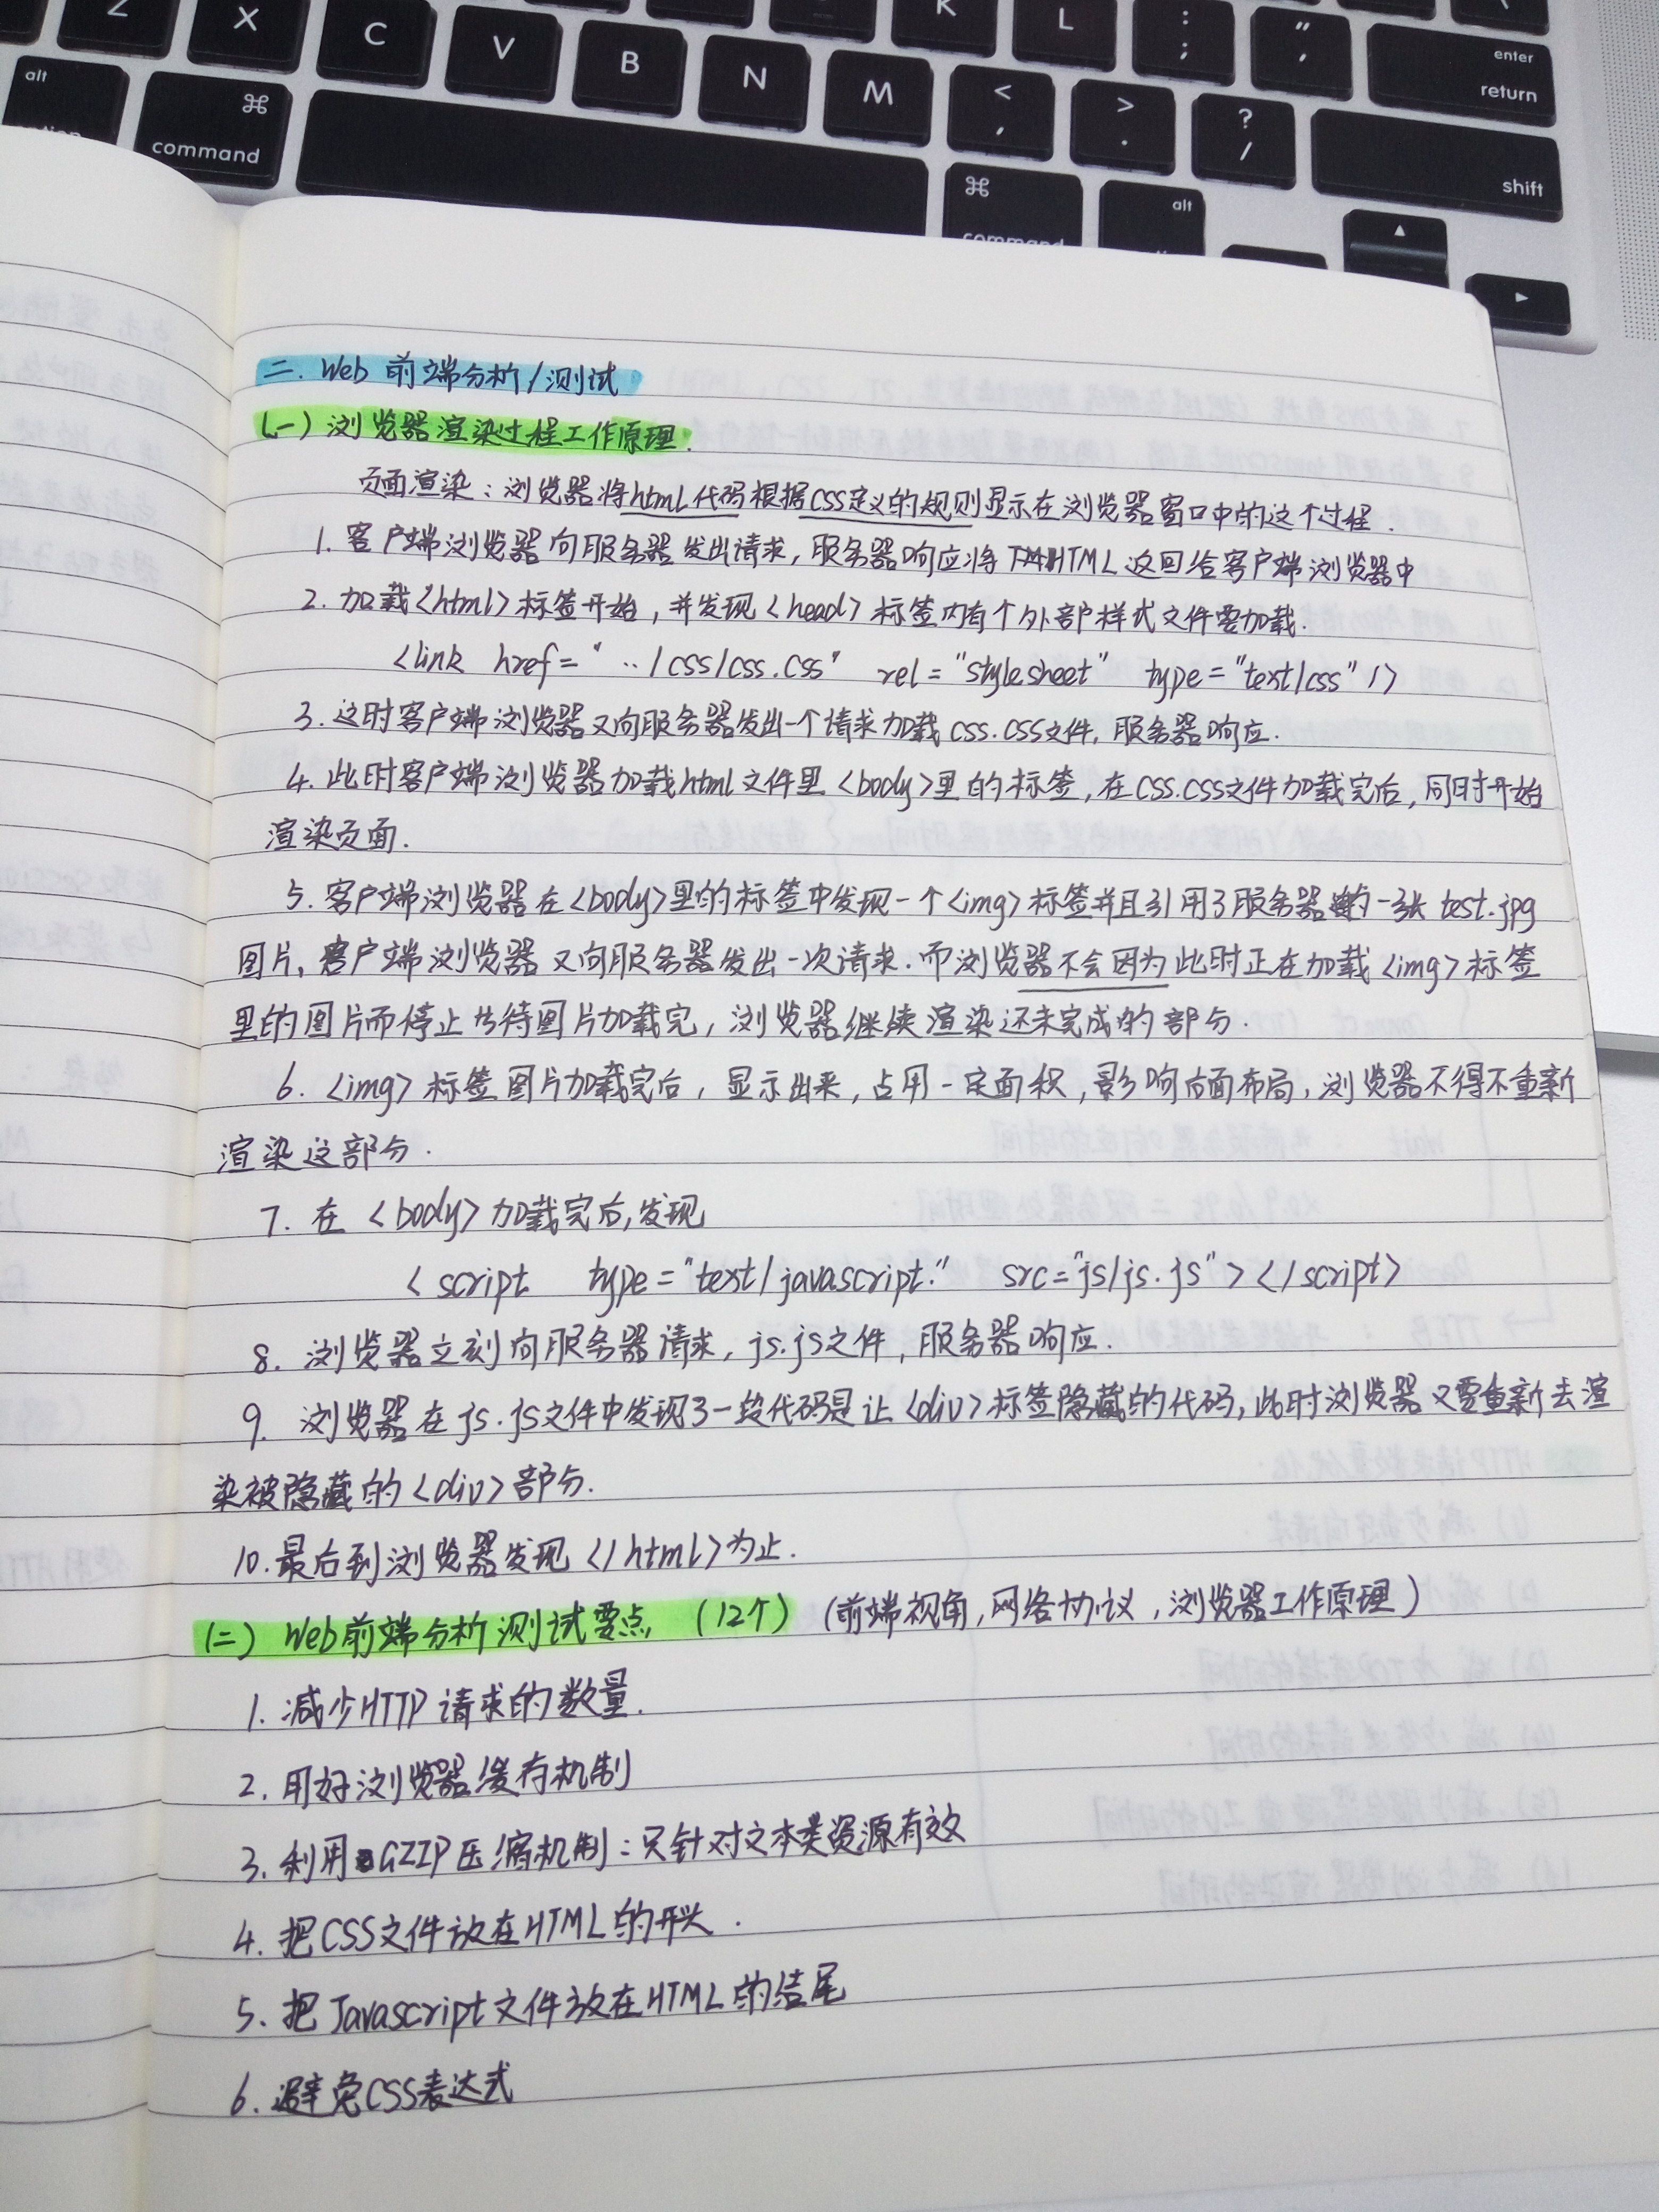 Z X C V B N M K L : ; " ' enter return
alt option ⌘ command < , > . ? / shift
⌘ command alt option
二. Web 前端分析/测试
(一) 浏览器渲染过程工作原理.
页面渲染：浏览器将html代码根据CSS定义的规则显示在浏览器窗口中的这个过程.
1. 客户端浏览器向服务器发出请求, 服务器响应将HTML返回给客户端浏览器中
2. 加载<html>标签开始, 并发现<head>标签内有个外部样式文件要加载.
<link href="../css/css.css" rel="stylesheet" type="text/css"/>
3. 这时客户端浏览器又向服务器发出一个请求加载CSS.CSS文件, 服务器响应.
4. 此时客户端浏览器加载html文件里<body>里的标签, 在CSS.CSS文件加载完后, 同时开始
渲染页面.
5. 客户端浏览器在<body>里的标签中发现一个<img>标签并且引用了服务器的一张test.jpg
图片, 客户端浏览器又向服务器发出一次请求. 而浏览器不会因为此时正在加载<img>标签
里的图片而停止等待图片加载完, 浏览器继续渲染还未完成的部分.
6. <img>标签图片加载完后, 显示出来, 占用一定面积, 影响后面布局, 浏览器不得不重新
渲染这部分.
7. 在<body>加载完后, 发现
<script type="text/javascript." src="js/js.js"></script>
8. 浏览器立刻向服务器请求, js.js文件, 服务器响应.
9. 浏览器在js.js文件中发现了一段代码是让<div>标签隐藏的代码, 此时浏览器又要重新去渲
染被隐藏的<div>部分.
10. 最后到浏览器发现</html>为止.
(二) Web前端分析测试要点 (12个) (前端视角, 网络协议, 浏览器工作原理)
1. 减少HTTP请求的数量.
2. 用好浏览器缓存机制
3. 利用GZIP压缩机制：只针对文本类资源有效
4. 把CSS文件放在HTML的开头.
5. 把Javascript文件放在HTML的结尾
6. 避免CSS表达式